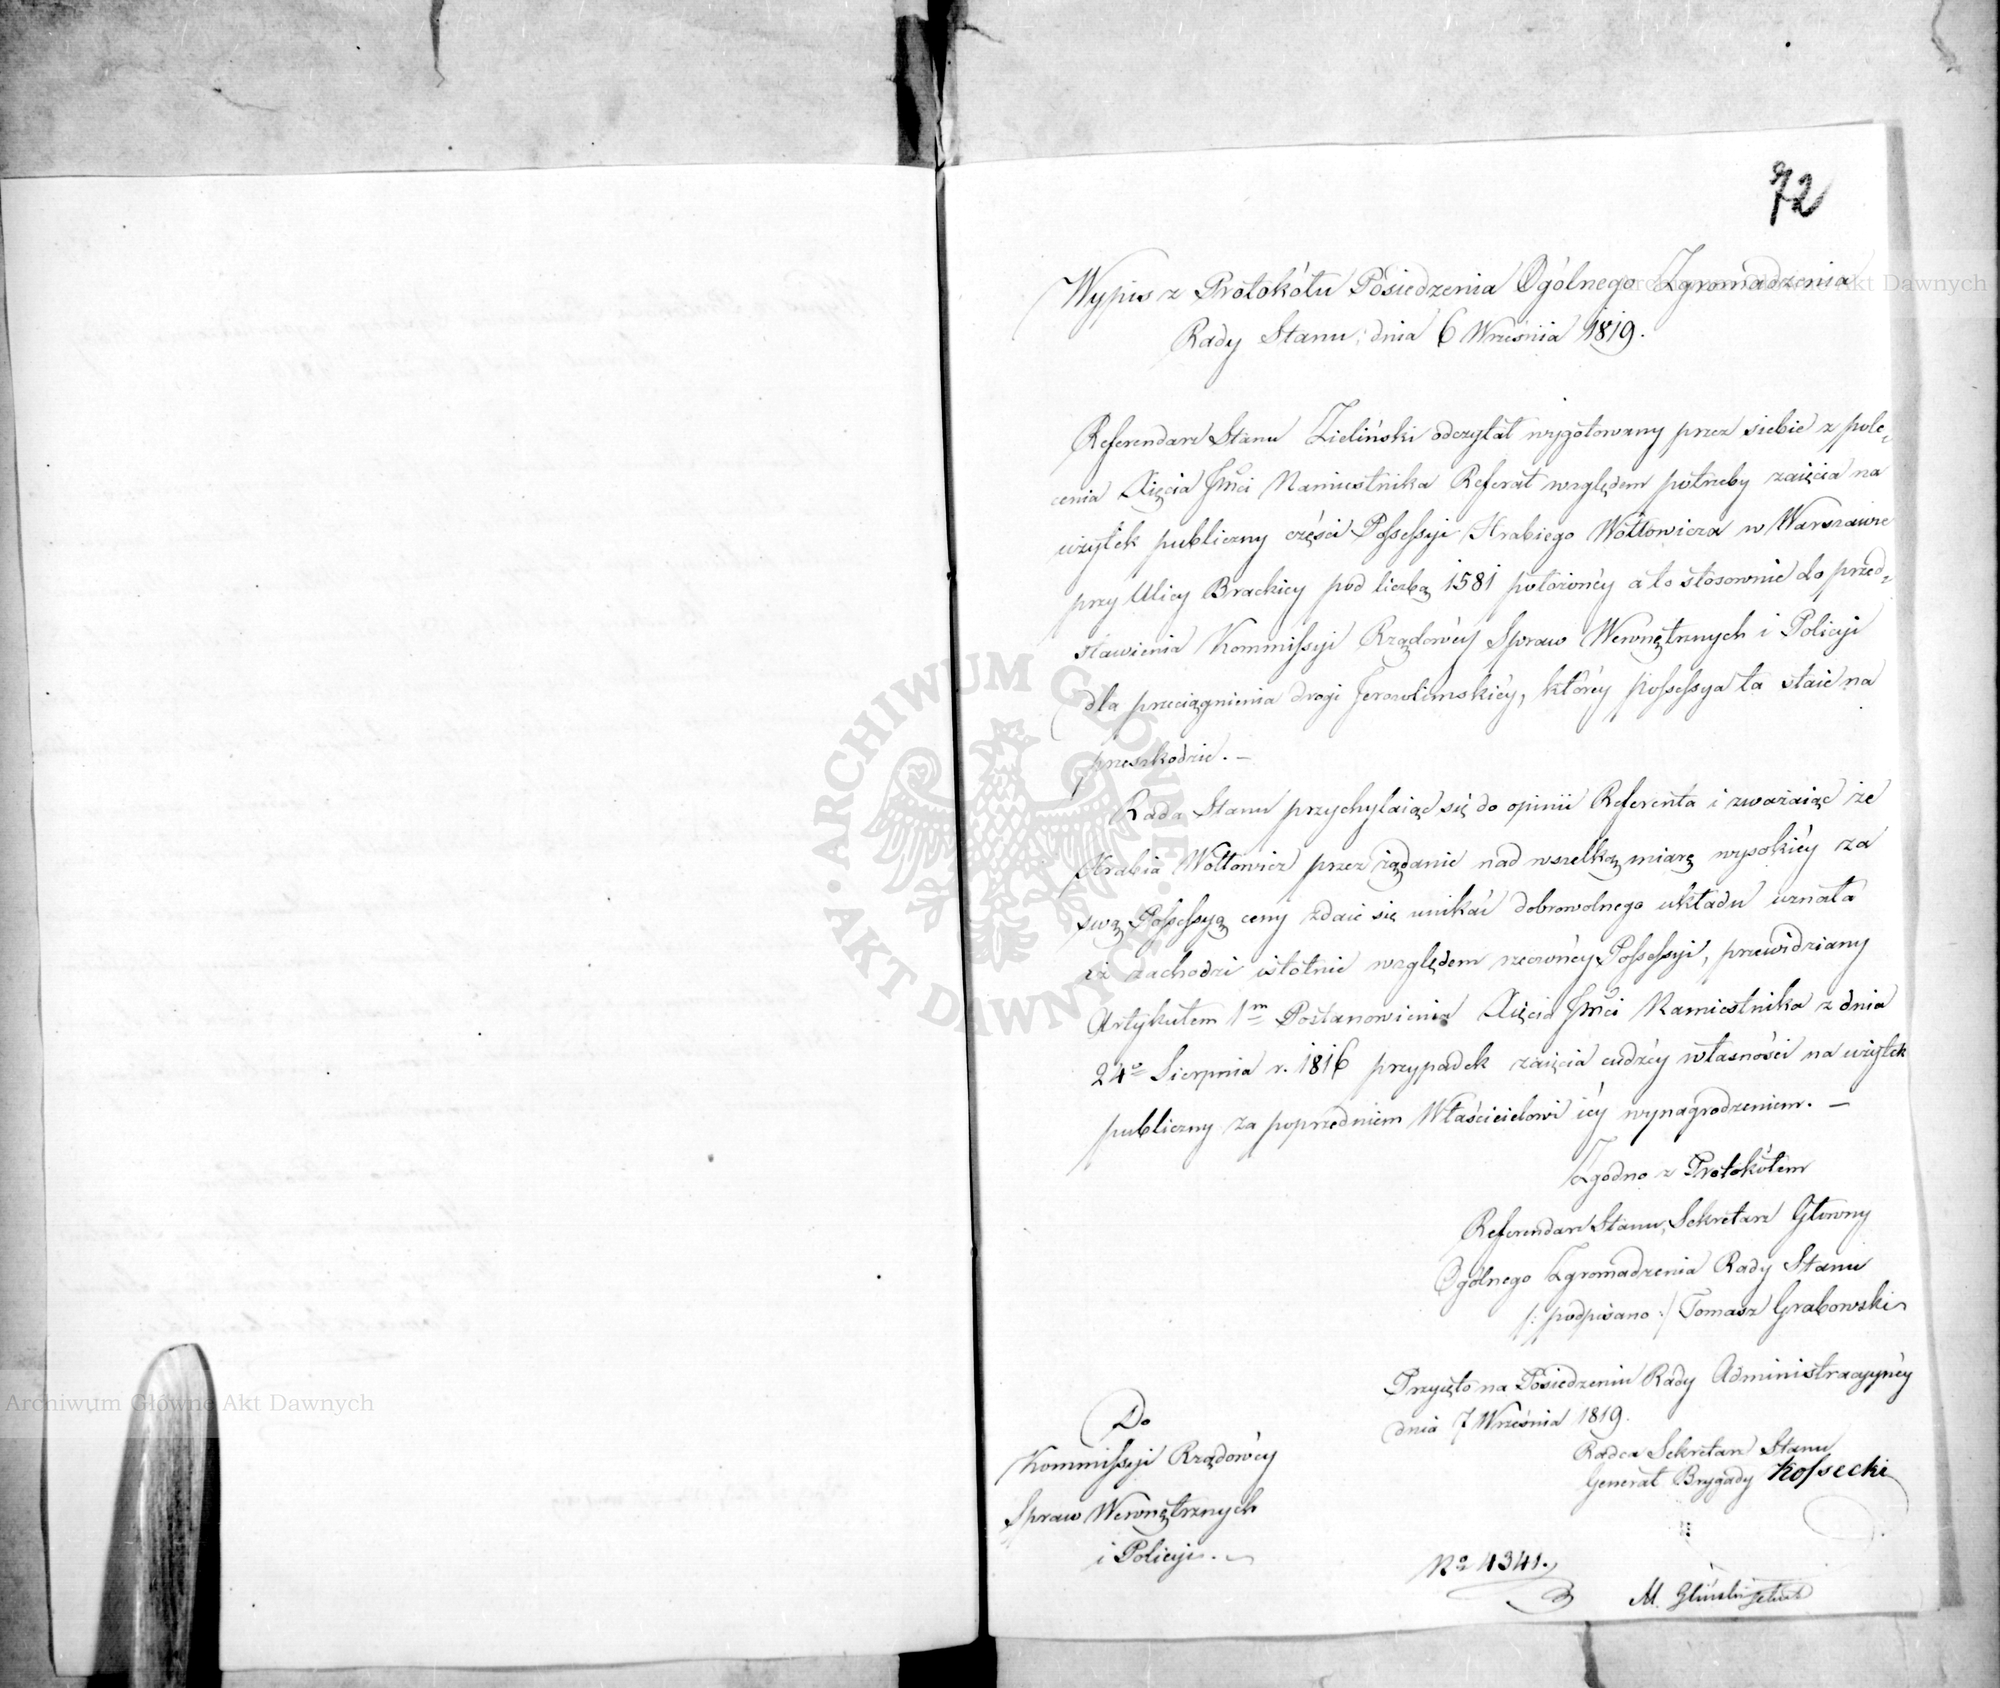 72
Wypis z Protokółu Posiedzenia Ogólnego Zgromadzenia
Rady Stanu; dnia 6 Września 1819.
Referendarz Stanu Zieliński odczytał wygotowany przez siebie z pole-
cenia Xięcia Jmci Namiestnika Referat względem potrzeby zaięcia na
użytek publiczny części Possessyi Hrabiego Wołłowicza w Warszawie
przy Ulicy Brackiey pod liczbą 1581 położonéy a to stosownie do przed-
stawienia Kommissyi Rządowéy Spraw Wewnętrznych i Policyi
dla przeciągnienia drogi Jerozolimskiéy, któréy possessya ta staie na
przeszkodzie. –
Rada Stanu przychylaiąc się do opinii Referenta i zważaiąc że
Hrabia Wołłowicz przez żądanie nad wszelką miarę wysokiéy za
swą Possessyą ceny zdaie się unikać dobrowolnego układu uznała
iż zachodzi istotnie względem rzeczonéy Possessyi, przewidziany
Artykułem 1m Postanowienia Xięcia Jmci Namiestnika z dnia
24o Sierpnia r. 1816 przypadek zaięcia cudzéy własności na użytek
publiczny za poprzedniem Właścicielowi iéy wynagrodzeniem. –
Zgodno z Protokółem
Referendarz Stanu, Sekretarz Głowny
Ogólnego Zgromadzenia Rady Stanu
/: podpisano :/ Tomasz Grabowski
Przyięto na Posiedzeniu Rady Administracyynéy
dnia 7 Września 1819.
Radca Sekretarz Stanu
Generał Brygady Kossecki
Do
Kommissyi Rządowéy
Spraw Wewnętrznych
i Policyi. –
No 4341.
M. Gliński
Archiwum Główne Akt Dawnych
ARCHIWUM GŁÓWNE · AKT DAWNYCH ·
Archiwum Główne Akt Dawnych